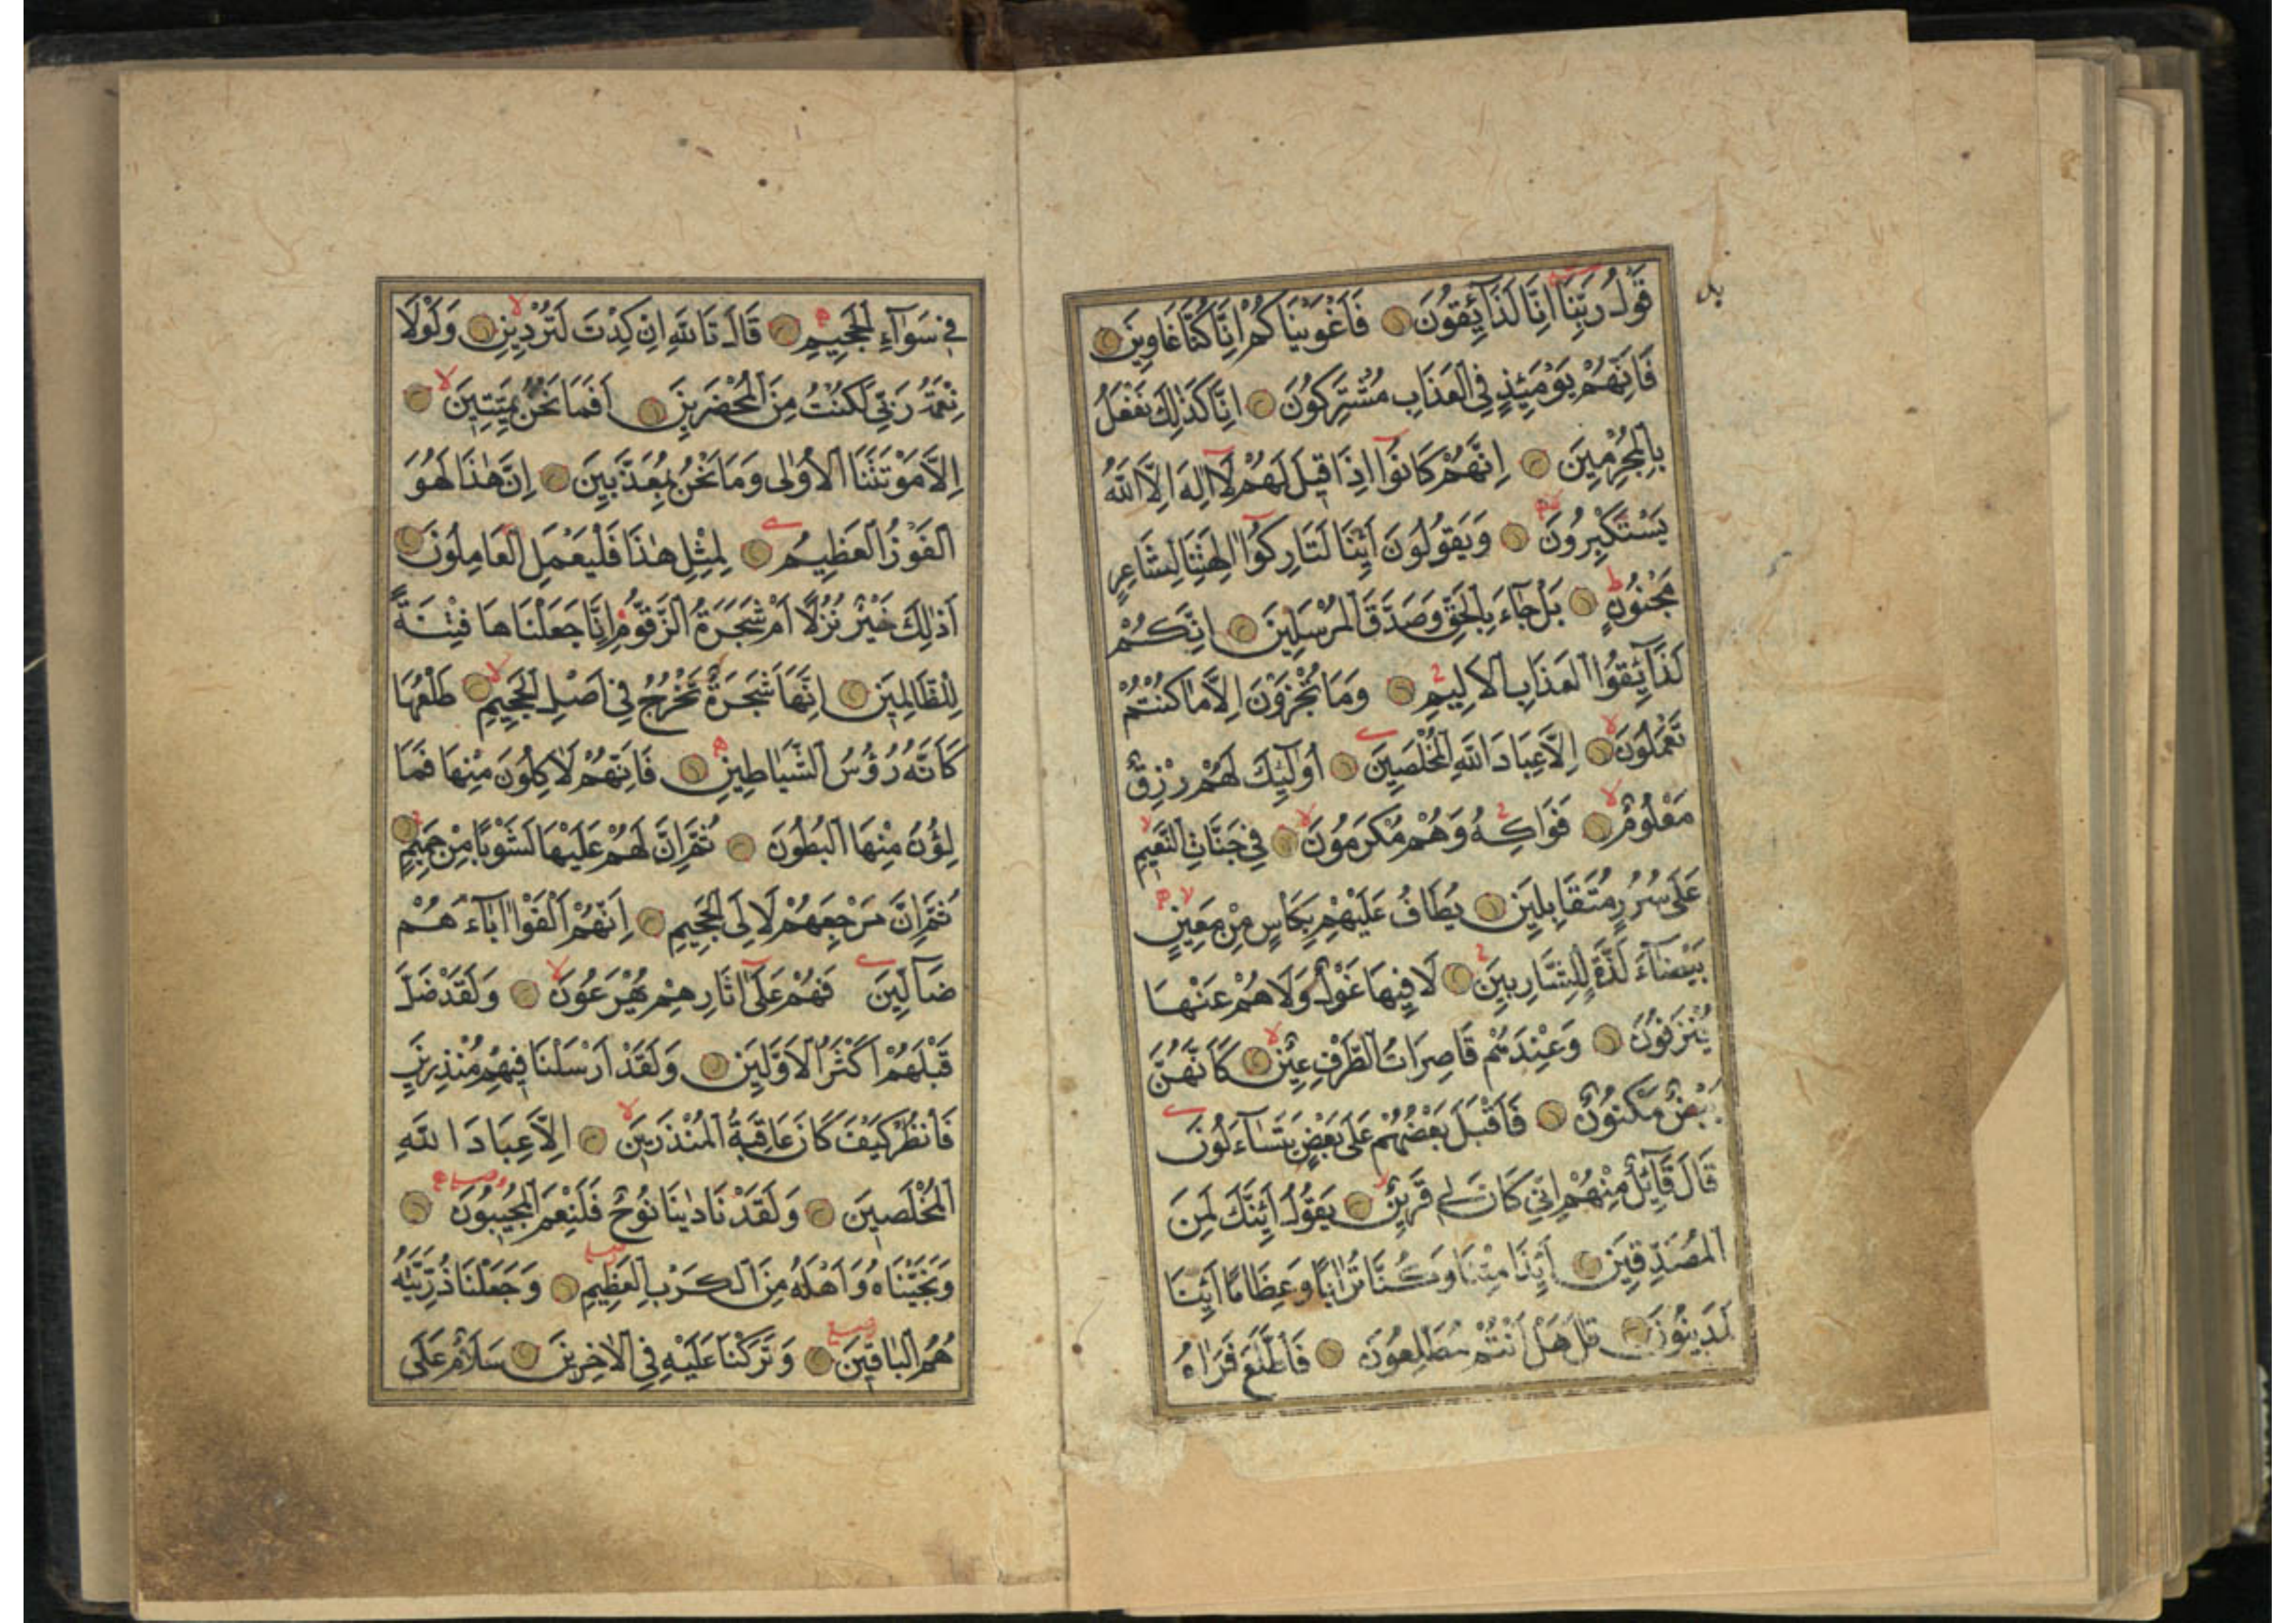 قَوْلُ رَبِّنَا اِنَّا لَذَآئِقُونَ فَاَغْوَيْنَاكُمْ اِنَّا كُنَّا غَاوِينَ
فَاِنَّهُمْ يَوْمَئِذٍ فِي الْعَذَابِ مُشْتَرِكُونَ اِنَّا كَذٰلِكَ نَفْعَلُ
بِالْمُجْرِمِينَ اِنَّهُمْ كَانُوا اِذَا قِيلَ لَهُمْ لَا اِلٰهَ اِلَّا اللّٰهُ
يَسْتَكْبِرُونَ وَيَقُولُونَ اَئِنَّا لَتَارِكُوا اٰلِهَتِنَا لِشَاعِرٍ
مَجْنُونٍ بَلْ جَآءَ بِالْحَقِّ وَصَدَّقَ الْمُرْسَلِينَ اِنَّكُمْ
لَذَآئِقُوا الْعَذَابِ الْاَلِيمِ وَمَا تُجْزَوْنَ اِلَّا مَا كُنْتُمْ
تَعْمَلُونَ اِلَّا عِبَادَ اللّٰهِ الْمُخْلَصِينَ اُولٰٓئِكَ لَهُمْ رِزْقٌ
مَعْلُومٌ فَوَاكِهُ وَهُمْ مُكْرَمُونَ فِي جَنَّاتِ النَّعِيمِ
عَلٰى سُرُرٍ مُتَقَابِلِينَ يُطَافُ عَلَيْهِمْ بِكَاْسٍ مِنْ مَعِينٍ
بَيْضَآءَ لَذَّةٍ لِلشَّارِبِينَ لَا فِيهَا غَوْلٌ وَلَا هُمْ عَنْهَا
يُنْزَفُونَ وَعِنْدَهُمْ قَاصِرَاتُ الطَّرْفِ عِينٌ كَاَنَّهُنَّ
بَيْضٌ مَكْنُونٌ فَاَقْبَلَ بَعْضُهُمْ عَلٰى بَعْضٍ يَتَسَآءَلُونَ
قَالَ قَآئِلٌ مِنْهُمْ اِنِّي كَانَ لِي قَرِينٌ يَقُولُ اَئِنَّكَ لَمِنَ
الْمُصَدِّقِينَ اَئِذَا مِتْنَا وَكُنَّا تُرَابًا وَعِظَامًا اَئِنَّا
لَمَدِينُونَ قَالَ هَلْ اَنْتُمْ مُطَّلِعُونَ فَاطَّلَعَ فَرَاٰهُ
فِي سَوَآءِ الْجَحِيمِ قَالَ تَاللّٰهِ اِنْ كِدْتَ لَتُرْدِينِ وَلَوْلَا
نِعْمَةُ رَبِّي لَكُنْتُ مِنَ الْمُحْضَرِينَ اَفَمَا نَحْنُ بِمَيِّتِينَ
اِلَّا مَوْتَتَنَا الْاُولٰى وَمَا نَحْنُ بِمُعَذَّبِينَ اِنَّ هٰذَا لَهُوَ
الْفَوْزُ الْعَظِيمُ لِمِثْلِ هٰذَا فَلْيَعْمَلِ الْعَامِلُونَ
اَذٰلِكَ خَيْرٌ نُزُلًا اَمْ شَجَرَةُ الزَّقُّومِ اِنَّا جَعَلْنَاهَا فِتْنَةً
لِلظَّالِمِينَ اِنَّهَا شَجَرَةٌ تَخْرُجُ فِي اَصْلِ الْجَحِيمِ طَلْعُهَا
كَاَنَّهُ رُؤُسُ الشَّيَاطِينِ فَاِنَّهُمْ لَاٰكِلُونَ مِنْهَا فَمَا
لِؤُنَ مِنْهَا الْبُطُونَ ثُمَّ اِنَّ لَهُمْ عَلَيْهَا لَشَوْبًا مِنْ حَمِيمٍ
ثُمَّ اِنَّ مَرْجِعَهُمْ لَاِلَى الْجَحِيمِ اِنَّهُمْ اَلْفَوْا اٰبَآءَهُمْ
ضَآلِّينَ فَهُمْ عَلٰٓى اٰثَارِهِمْ يُهْرَعُونَ وَلَقَدْ ضَلَّ
قَبْلَهُمْ اَكْثَرُ الْاَوَّلِينَ وَلَقَدْ اَرْسَلْنَا فِيهِمْ مُنْذِرِينَ
فَانْظُرْ كَيْفَ كَانَ عَاقِبَةُ الْمُنْذَرِينَ اِلَّا عِبَادَ اللّٰهِ
الْمُخْلَصِينَ وَلَقَدْ نَادٰينَا نُوحٌ فَلَنِعْمَ الْمُجِيبُونَ
وَنَجَّيْنَاهُ وَاَهْلَهُ مِنَ الْكَرْبِ الْعَظِيمِ وَجَعَلْنَا ذُرِّيَّتَهُ
هُمُ الْبَاقِينَ وَتَرَكْنَا عَلَيْهِ فِي الْاٰخِرِينَ سَلَامٌ عَلٰى